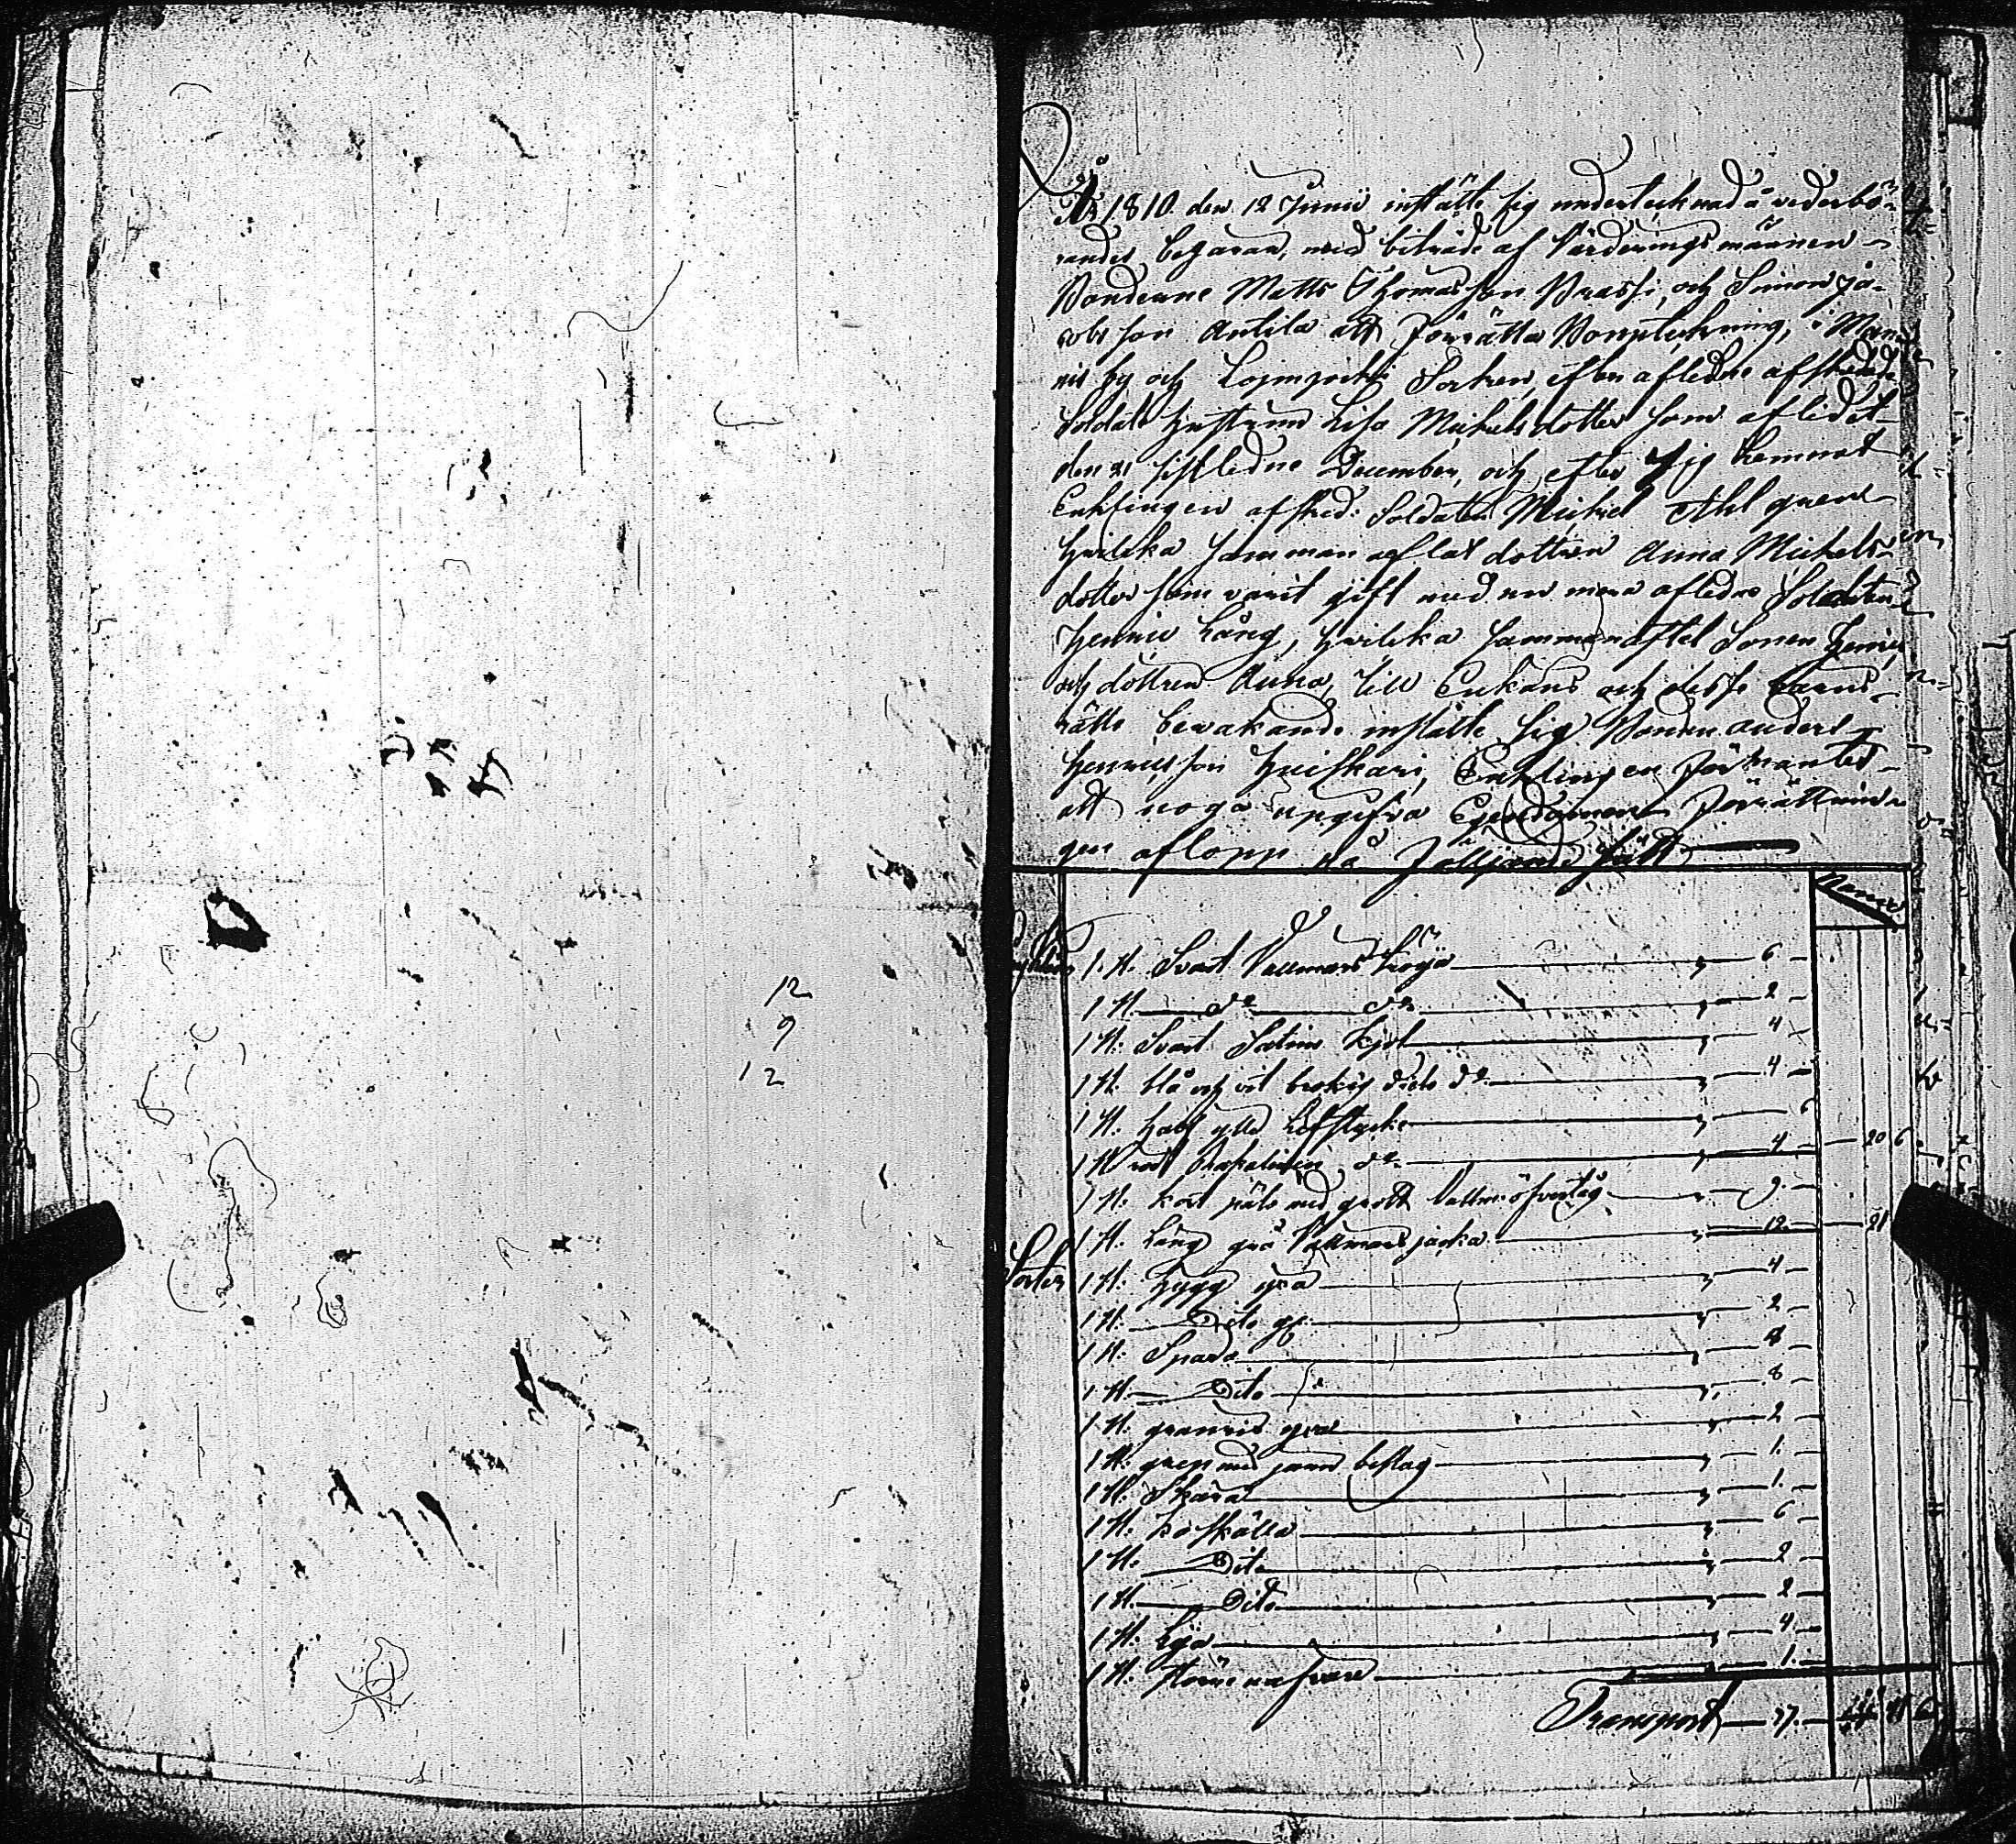 12
9
12
År 1810. den 12 Junii instälte sig undertecknad å vederbö-
randes begäran, med biträde af Värderings männen
Bonderne Matts Thomasson Prassi, och Simon Ja-
cobsson Antila att förrätta Bouptekning, i
by och Loimjocki Socken, efter aflidne afskedade
Soldats hustrun Lisa Michelsdotter som aflidet
den 21 sistledne December, och efter sig lemnat
Enklingen afsked: Soldaten Michel Ahlgren
hvilcka samman aflat dottren Anna Michels-
dotter som varit gift med nu mera aflidne Soldaten
Henric Lång, hvilcka samman aflat Sonen Henric
och dottren Anna, till Enkans och desse barns
rätts bevakande instälte sig Bonden Anders
Henricsson Huiskari, Enklingen förmantes
att noga upgifva Egendomen förrättnin-
gen aflopp på följande sätt
1 st. Svart Vallmars tröja 6
1 st. do do 2
1 st: Svart Satins Kjol 4
1 st. blå och vit brokig dito do 4
1 st: half ylle Lifstycke
1 st röd do 4 20 6
1 st. kort päls med grått Vallms öfvertåg 9.
1 st. Lång grå Vallmars jacka 12 21
1 st: hygg yxa 4
1 st. Dito 2
1 st: Spada
1 st. Dito 8
1 st. granris yxa 2
1 st: grep med jaern beslag 1.
1 st. Skära 1.
1 st. koskälla 6
1 st. Dito 2
1 st. Dito 2
1 st: Lya 4
1 st. 1.
Transport 27.